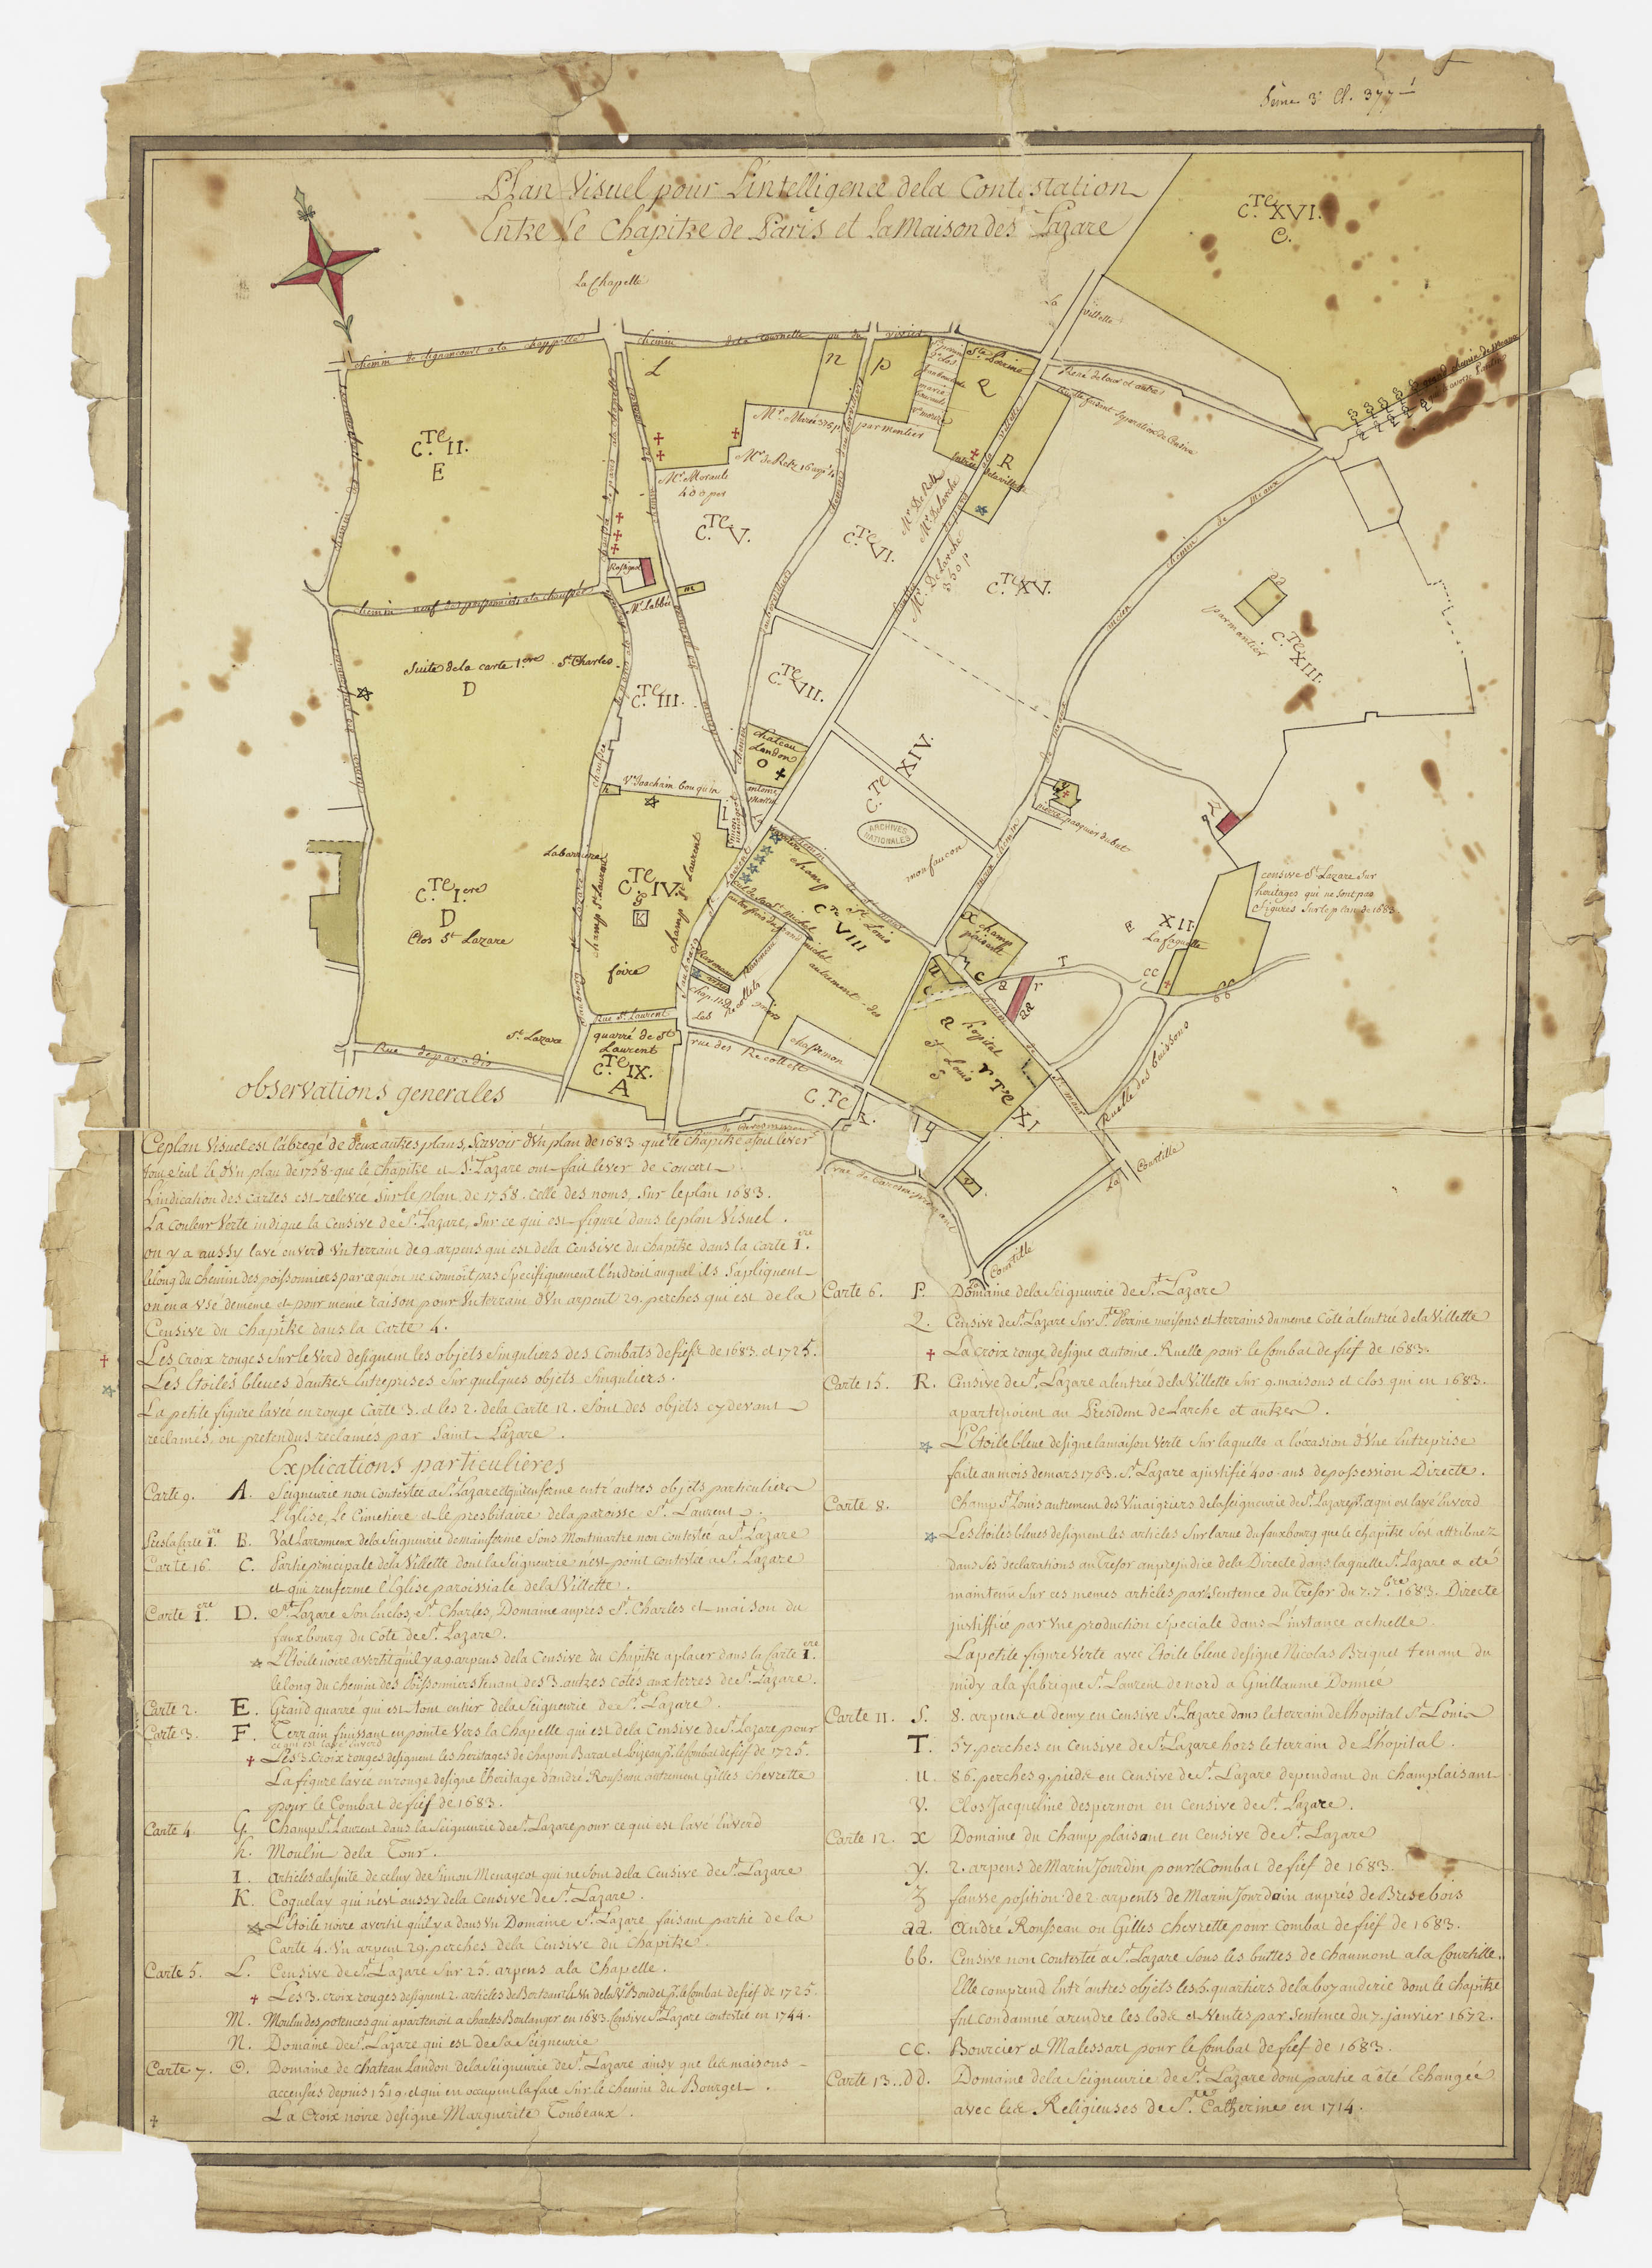 Seine 3e Cl. 377
Plan Visuel pour L'intelligence dela Contestation
Entre Le Chapitre de Paris et La Maison de St Lazare
La Chapelle
C.Te XVI.
C.
La Villette
chemin de clignancourt a la chappelle
chemin dela tournelle ou du vivier
L
n
p
Ste Perine
Q
René deLour et autres
Ruelle faisant Separation de Censive
grand chemin de meaux
C.Te II.
E
Mr Maraü 376 p.
parmentier
Mr de Retz 16 arp.
Mr Moraule
400 per
R
Entrée dela villette
Mr De Retz
Mr DeLarche
Mr DeLarche
550 p
C.Te V.
C.Te VI.
C.Te XV.
ancien chemin de Meaux
dd
parmantier
C.Te XIII.
Rossignol
Mr Labbé
m
chemin neuf des poissonniers a la chaussée
Suite de la carte 1.ere St Charles
D
C.Te III.
C.Te VII.
chateau
Landon
O
C.Te XIV.
Ve Joachim bouquin
h
I
ARCHIVES
NATIONALES
monfaucon
pierre pasquier dubut
Labarriere
C.Te I.ere
D
Clos St Lazare
C.Te IV.
G
K
champ St Laurent
champ St Laurent
foire
champ St Louis
C.te VIII
X champ
plaisant
XII
Lafaguette
censive St Lazare sur
heritages qui ne sont pas
figurés sur le plan de 1683
cc
bb
T
aa
u
hopital
St Louis
S
C.Te XI
chapinon
St Lazare
Rue de paradis
Rue St Laurent
quarré de St
Laurent
C.Te IX.
A
rue des Recollets
C.Te X.
Ruelle des buissons
La Courtille
rue de Caresmeprenant
v
La Courtille
observations generales
Ce plan Visuel est l'abregé de deux autres plans, Scavoir d'Un plan de 1683 que le chapitre a fait lever
tout seul et d'Un plan de 1758 que le chapitre et St Lazare ont fait lever de concert.
L'indication des cartes est relevée sur le plan de 1758. celle des noms, sur le plan 1683.
La couleur Verte indique la censive de St Lazare, sur ce qui est figuré dans le plan Visuel.
on y a aussy lavé en verd Un terrain de 9 arpens qui est dela censive du chapitre dans la carte I.ere
le long du chemin des poissonniers parce qu'on ne connoit pas specifiquement l'endroit auquel ils s'apliquent
on en a Usé de meme et pour meme raison pour Un terrain d'Un arpent 29. perches qui est de la
Censive du chapitre dans la carte 4.
Les croix rouges sur le verd designent les objets singuliers des Combats de fief de 1683 et 1725.
Les Etoiles bleues d'autres entreprises sur quelques objets singuliers.
La petite figure lavée en rouge Carte 3. et les 2. dela carte 12. sont des objets cy devant
reclamés, ou pretendus reclamés par Saint Lazare.
Explications particulieres
Carte 9. A. Seigneurie non contestée a St Lazare et qui renferme entr'autres objets particuliers
L'Eglise, le Cimetiere et le presbitaire dela paroisse St Laurent.
Pres la Carte I.ere B. Val Larronneux dela Seigneurie de mainferme sous Montmartre non contestée a St Lazare
Carte 16. C. Partie principale dela Villette dont la Seigneurie n'est point contestée a St Lazare
et qui renferme l'Eglise paroissiale dela Villette.
Carte I.ere D. St Lazare son Enclos, St Charles, Domaine auprès St Charles et maison du
fauxbourg du coté de St Lazare.
L'Etoile noire avertit qu'il y a 9. arpens dela Censive du Chapitre a placer dans la Carte I.ere
le long du chemin des Poissonniers tenant des 3. autres cotés aux terres de St Lazare.
Carte 2. E. Grand quarré qui est tout entier dela Seigneurie de St Lazare.
Carte 3. F. Terrain finissant en pointe Vers la Chapelle qui est dela Censive de St Lazare pour
ce qui est lavé Enverd
Les 3 Croix rouges designent les heritages de chapon Barat et Lizeau pr le Combat de fief de 1725.
La figure lavée en rouge designe l'heritage d'andré Rousseau autrement Gilles chevrette
pour le Combat de fief de 1683.
Carte 4 G. Champ St Laurent dans la Seigneurie de St Lazare pour ce qui est lavé Enverd
h. Moulin dela Tour.
I. articles a la suite de celuy de Simon Menageot qui ne sont dela Censive de St Lazare
K. Coquelay qui n'est aussy dela Censive de St Lazare.
L'Etoile noire avertit qu'il y a dans Un Domaine St Lazare faisant partie de la
Carte 4. Un arpent 29. perches dela Censive du Chapitre.
Carte 5. L. Censive de St Lazare sur 25. arpens a la Chapelle.
Les 3. croix rouges designent 2. articles de Berteau et Un dela Ve Bondet pr le Combat de fief de 1725.
M. Moulin des potences qui apartenoit a charles Boulanger en 1683. Censive St Lazare contestée en 1744.
N. Domaine de St Lazare qui est de sa Seigneurie
Carte 7. O. Domaine de chateau Landon dela Seigneurie de St Lazare ainsy que les maisons
accensées depuis 1519. et qui en occupent la face sur le chemin du Bourget.
La Croix noire designe Marguerite Tonbeaux.
Carte 6. P. Domaine dela Seigneurie de St Lazare
Q. Censive de St Lazare sur Ste Perine maisons et terrains du meme côté a l'entrée dela Villette
La croix rouge designe antoine Ruelle pour le Combat de fief de 1683.
Carte 15. R. Censive de St Lazare a l'entrée dela Villette sur 9. maisons et clos qui en 1683.
apartenoient au President de Larche et autres.
L'Etoile bleue designe la maison Verte sur laquelle a l'occasion d'Une Entreprise
faite au mois de mars 1763. St Lazare a justifié 400. ans de possession Directe.
Carte 8. Champ St Louis autrement des Vinaigriers dela Seigneurie de St Lazare pr ce qui est lavé Enverd
Les Etoiles bleues designent les articles sur la rue du fauxbourg que le chapitre s'est attribuez
dans ses declarations au Tresor au prejudice dela Directe dans laquelle St Lazare a eté
maintenu sur ces memes articles par Sentence du Tresor du 7. 7.bre 1683. Directe
justiffiée par Une production speciale dans L'instance actuelle.
La petite figure Verte avec Etoile bleue designe Nicolas Briquet tenant du
midy a la fabrique St Laurent de nord a Guillaume Donnée
Carte 11. S. 8. arpens et demy en censive St Lazare dans le terrain de l'hopital St Louis
T. 57. perches en censive de St Lazare hors le terrain de L'hopital.
u. 86. perches 9. pieds en Censive de St Lazare dependant du champlaisant
V. Clos Jacqueline despernon en censive de St Lazare.
Carte 12. X Domaine du Champ plaisant en censive de St Lazare
y. 2. arpens de Marin Jourdin pour le Combat de fief de 1683.
z fausse position de 2 arpents de Marin Jourdain auprés de Brisebois
aa. andré Rousseau ou Gilles chevrette pour combat de fief de 1683.
bb. Censive non contestée a St Lazare sous les buttes de chaumont a la Courtille.
Elle comprend Entr'autres objets les 5. quartiers dela boyauderie dont le chapitre
fut condamné a rendre les lods et Ventes par Sentence du 7. janvier 1672.
CC. Bourcier et Malessart pour le Combat de fief de 1683.
Carte 13. dd. Domaine dela Seigneurie de St Lazare dont partie a été Echangée
avec les Religieuses de Ste Catherine en 1714.